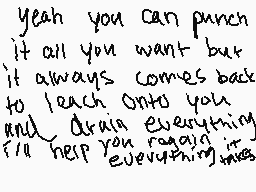 yeah you can punch
it all you want but
it always comes back
to leach onto you
and drain everything
I'll help you regain
everything it takes